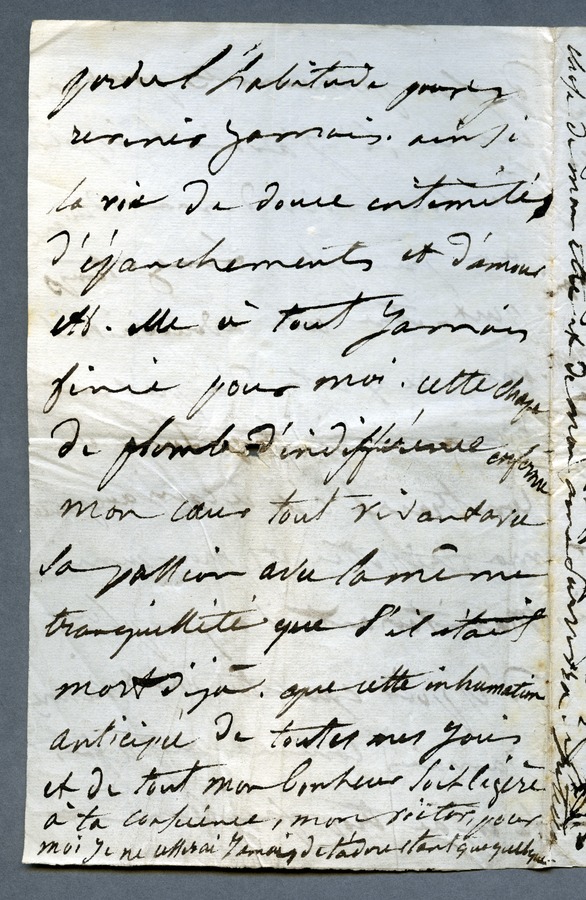 perdu l'habitude pour y
revenir jamais. ainsi
la vie de douce intimités,
d'épanchements et d'amour
est. elle à tout jamais
finie pour moi. cette chape
de plomb d'indifférence enferme
mon cœur tout vivant avec
sa passion avec la même
tranquillité que s'il était
mort déjà. que cette inhumation
anticipée de toutes mes joies
et de tout mon bonheur soit légère
à ta conscience, mon victor, pour
moi je ne cesserai jamais de t'adorer tant que quelque
chose de mon être et de mon âme